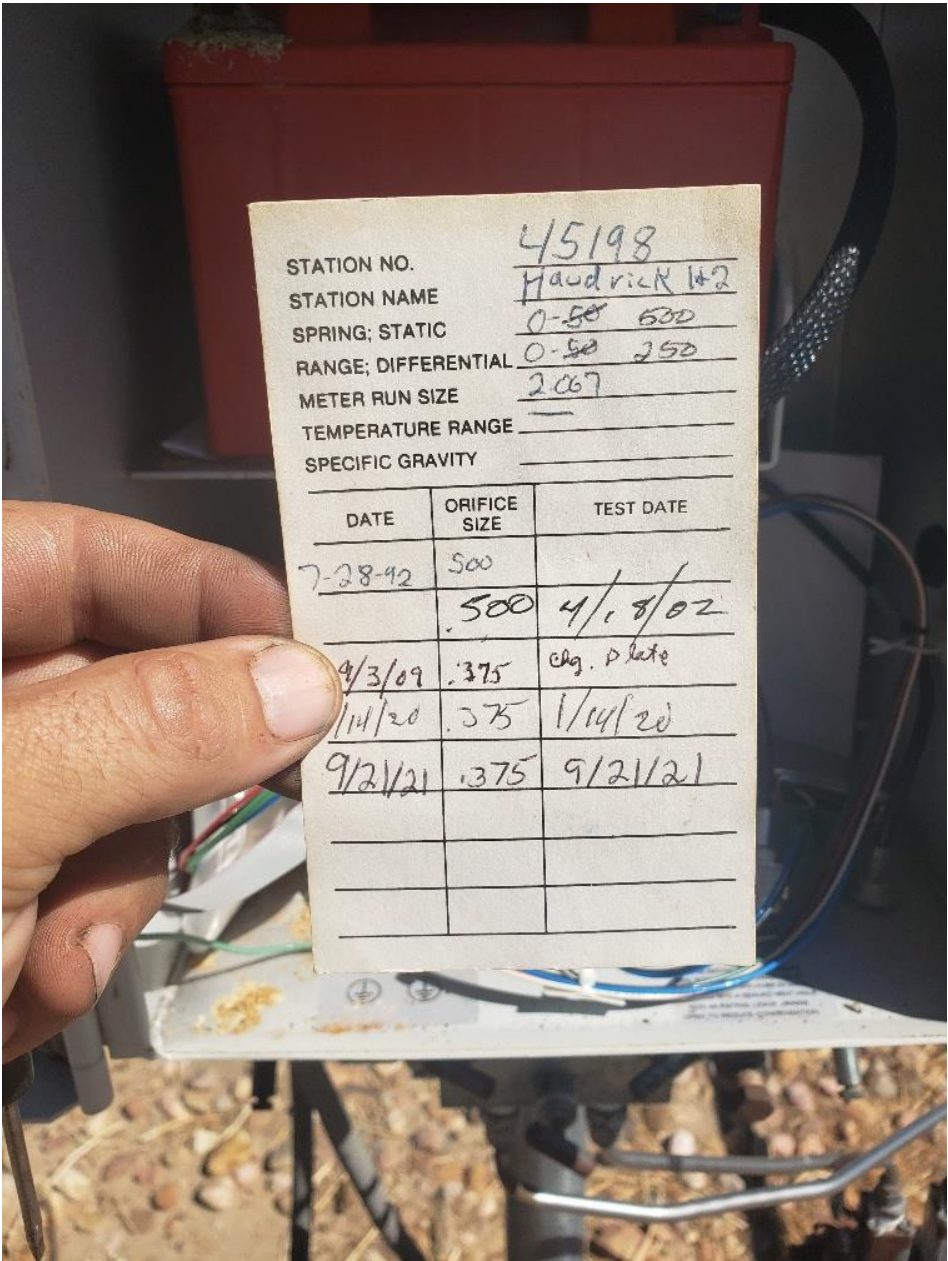 STATION NO. 45198
STATION NAME Haudrick 1#2
SPRING; STATIC 0-50 500
RANGE; DIFFERENTIAL 0-50 250
METER RUN SIZE 2.067
TEMPERATURE RANGE —
SPECIFIC GRAVITY
DATE ORIFICE SIZE TEST DATE
7-28-92 500
.500 4/18/02
9/3/09 .375 chg. Plate
1/14/20 .375 1/14/20
9/21/21 .375 9/21/21